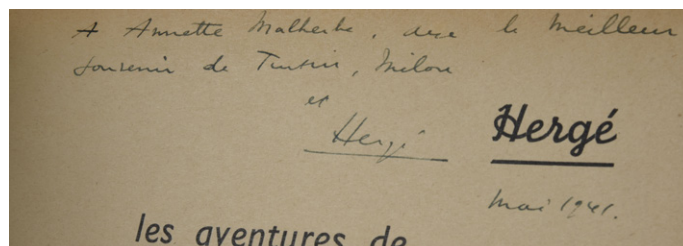 A Annette Malherbe, avec le meilleur
souvenir de Tintin, Milou
et
Hergé
Hergé
Mai 1941.
les aventures de